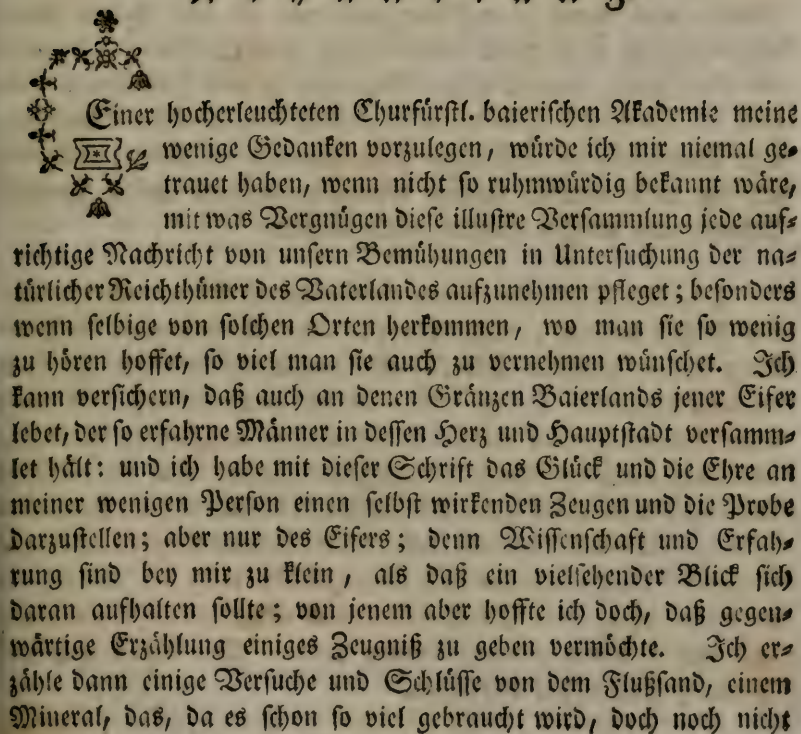 Einer hocherleuchteten Churfürstl. baierischen Akademie meine
wenige Gedanken vorzulegen, würde ich mir niemal ge-
trauet haben, wenn nicht so ruhmwürdig bekannt wäre,
mit was Vergnügen diese illustre Versammlung jede auf-
richtige Nachricht von unsern Bemühungen in Untersuchung der na-
türlicher Reichthümer des Vaterlandes aufzunehmen pfleget; besonders
wenn selbige von solchen Orten herkommen, wo man sie so wenig
zu hören hoffet, so viel man sie auch zu vernehmen wünschet. Ich
kann versichern, daß auch an denen Gränzen Baierlands jener Eifer
lebet, der so erfahrne Männer in dessen Herz und Hauptstadt versamm-
let hält: und ich habe mit dieser Schrift das Glück und die Ehre an
meiner wenigen Person einen selbst wirkenden Zeugen und die Probe
darzustellen; aber nur des Eifers; denn Wissenschaft und Erfah-
rung sind bey mir zu klein, als daß ein vielsehender Blick sich
daran aufhalten sollte; von jenem aber hoffte ich doch, daß gegen-
wärtige Erzählung einiges Zeugniß zu geben vermöchte. Ich er-
zähle dann einige Versuche und Schlüsse von dem Flußsand, einem
Mineral, das, da es schon so viel gebraucht wird, doch noch nicht